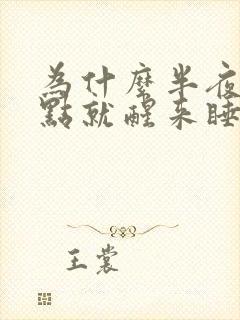 為什麼半夜
點就醒來睡
王裳